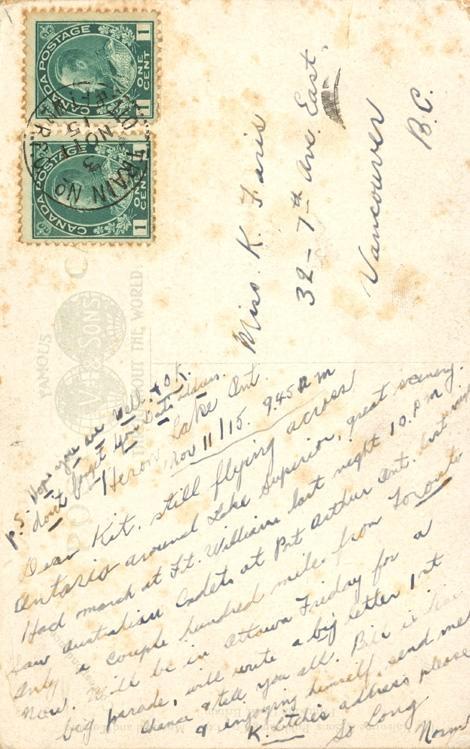 CANADA POSTAGE
ONE CENT
1 1
CANADA POSTAGE
ONE CENT
1 1
TRAIN No
3
NO 11
15
Miss K. Faris
32-7th Ave. East.
Vancouver
B.C.
FAMOUS
SONS
ABOUT THE WORLD
P.S. Hope you are well. & O.K.
don't forget
Heron Lake Ont
Nov 11/15. 9.45 a m
Dear Kit. still flying across
Ontario around Lake Superior, great scenery.
Had march at Ft. William last night 10. P.M.
Saw Australian Cadets at Port Arthur Ont. last night
Only a couple hundred miles from Toronto
now. Will be in Ottawa Friday for a
big parade, will write a big letter 1st
chance & tell you all. Bill is here
& enjoying himself, send me
K address please
So Long
Norm